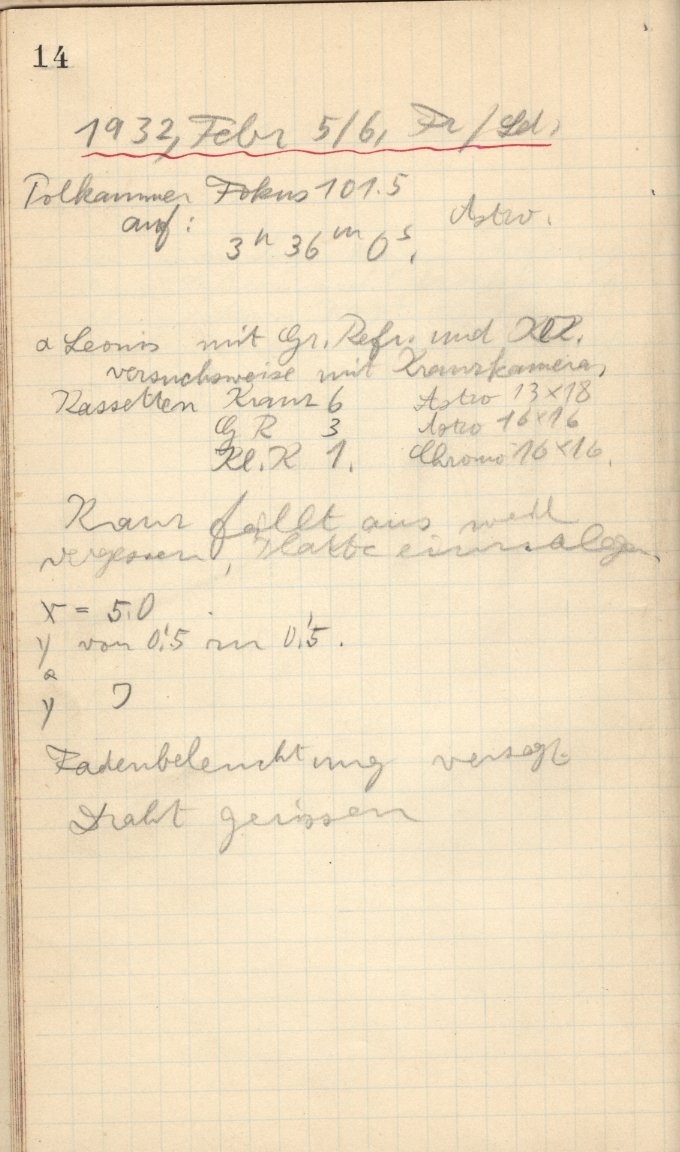 14
1932, Febr 5/6, Fr/Sd.
Polkammer Fokus 101.5
auf: Astro.
3h 36m 0s.
α Leonis mit Gr. Refr. und
versuchsweise mit Kranzkamera,
Kassetten Kranz 6 Astro 13×18
G R 3 Astro 16×16
Kl. R 1. Chromo 16×16.
Kranz fällt aus weil
vergessen, Platte einzulegen.
x = 5.0
y von 0.5 zu 0.5.
y
Fadenbeleuchtung versagt
Draht gerissen